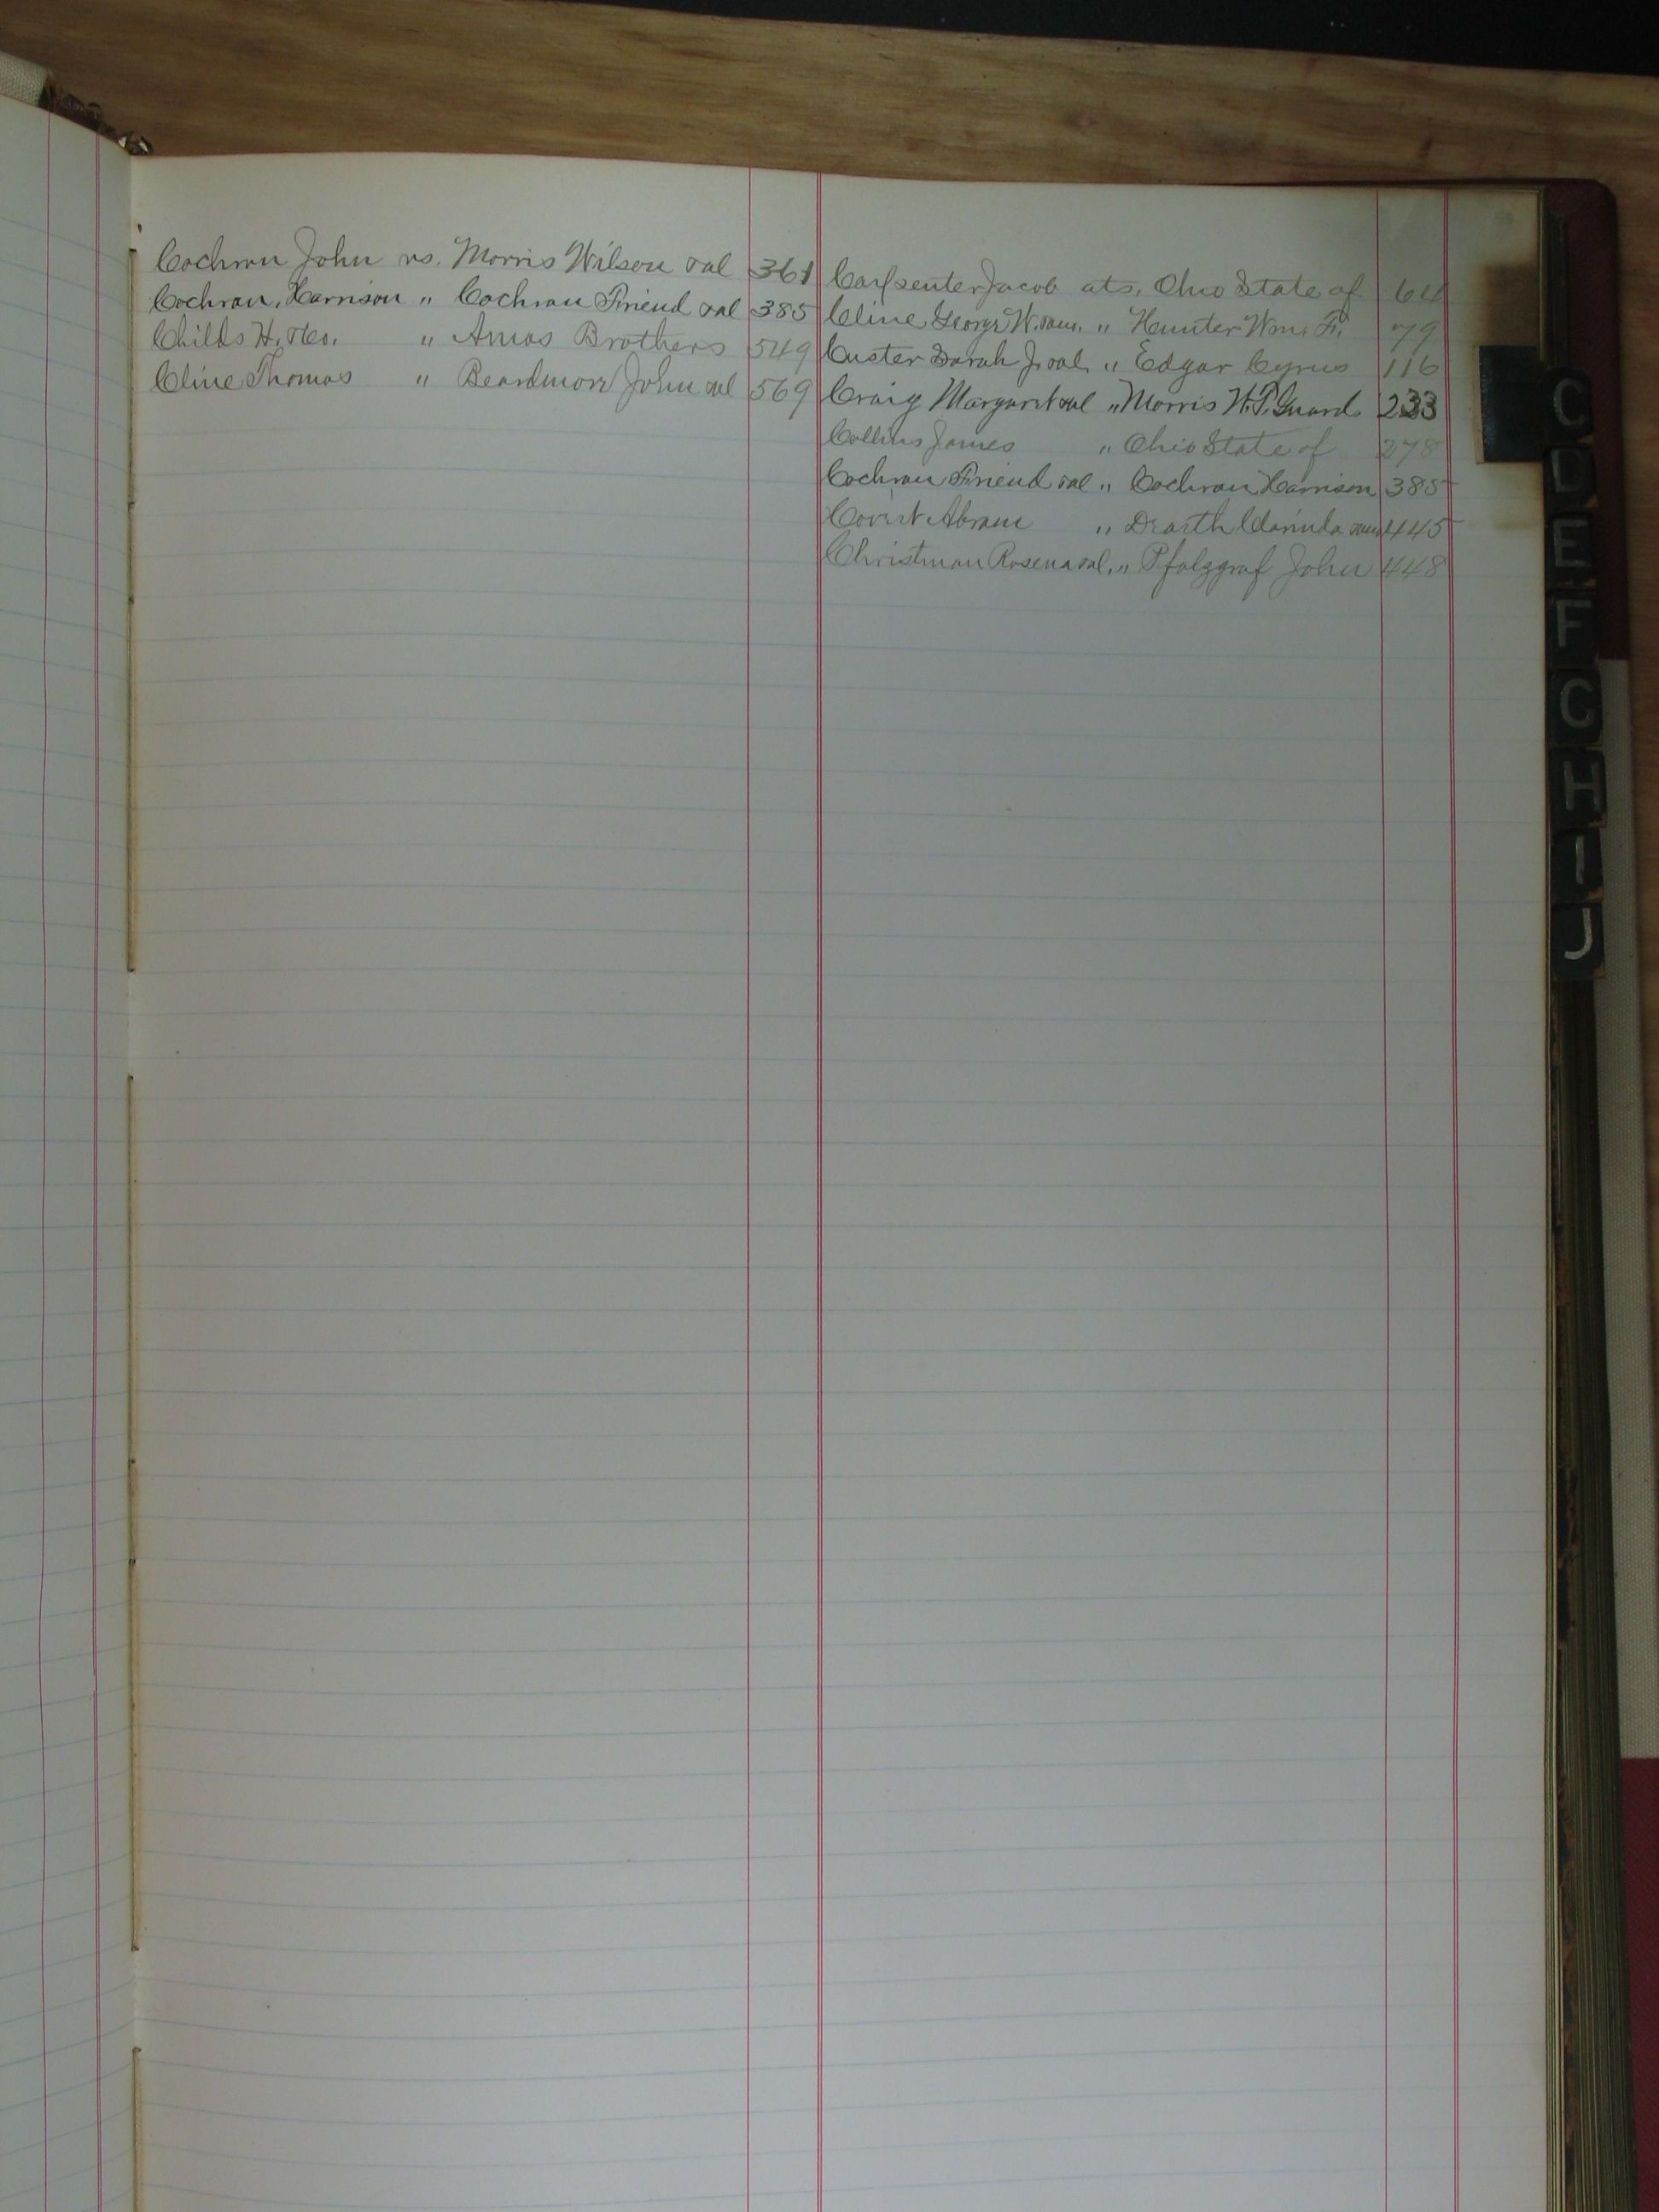 Cochran John vs. Morris Wilson et al 361
Cochran, Harrison " Cochran Friend et al 385
Childs H. & Co. " Amos Brothers 549
Cline Thomas " Beardmore John et al 569
Carpenter Jacob ats. Ohio State of 64
Cline George W. " Hunter Wm. F. 79
Custer Sarah J et al. " Edgar Cyrus 116
Craig Margaret et al " Morris H. P. Guard. 233
Collins James " Ohio State of 278
Cochran Friend et al " Cochran Harrison 385
Covert Abram " Clarinda 445
Christman Rosena et al. " Pfalzgraf John 448
C
D
E
F
G
H
I
J